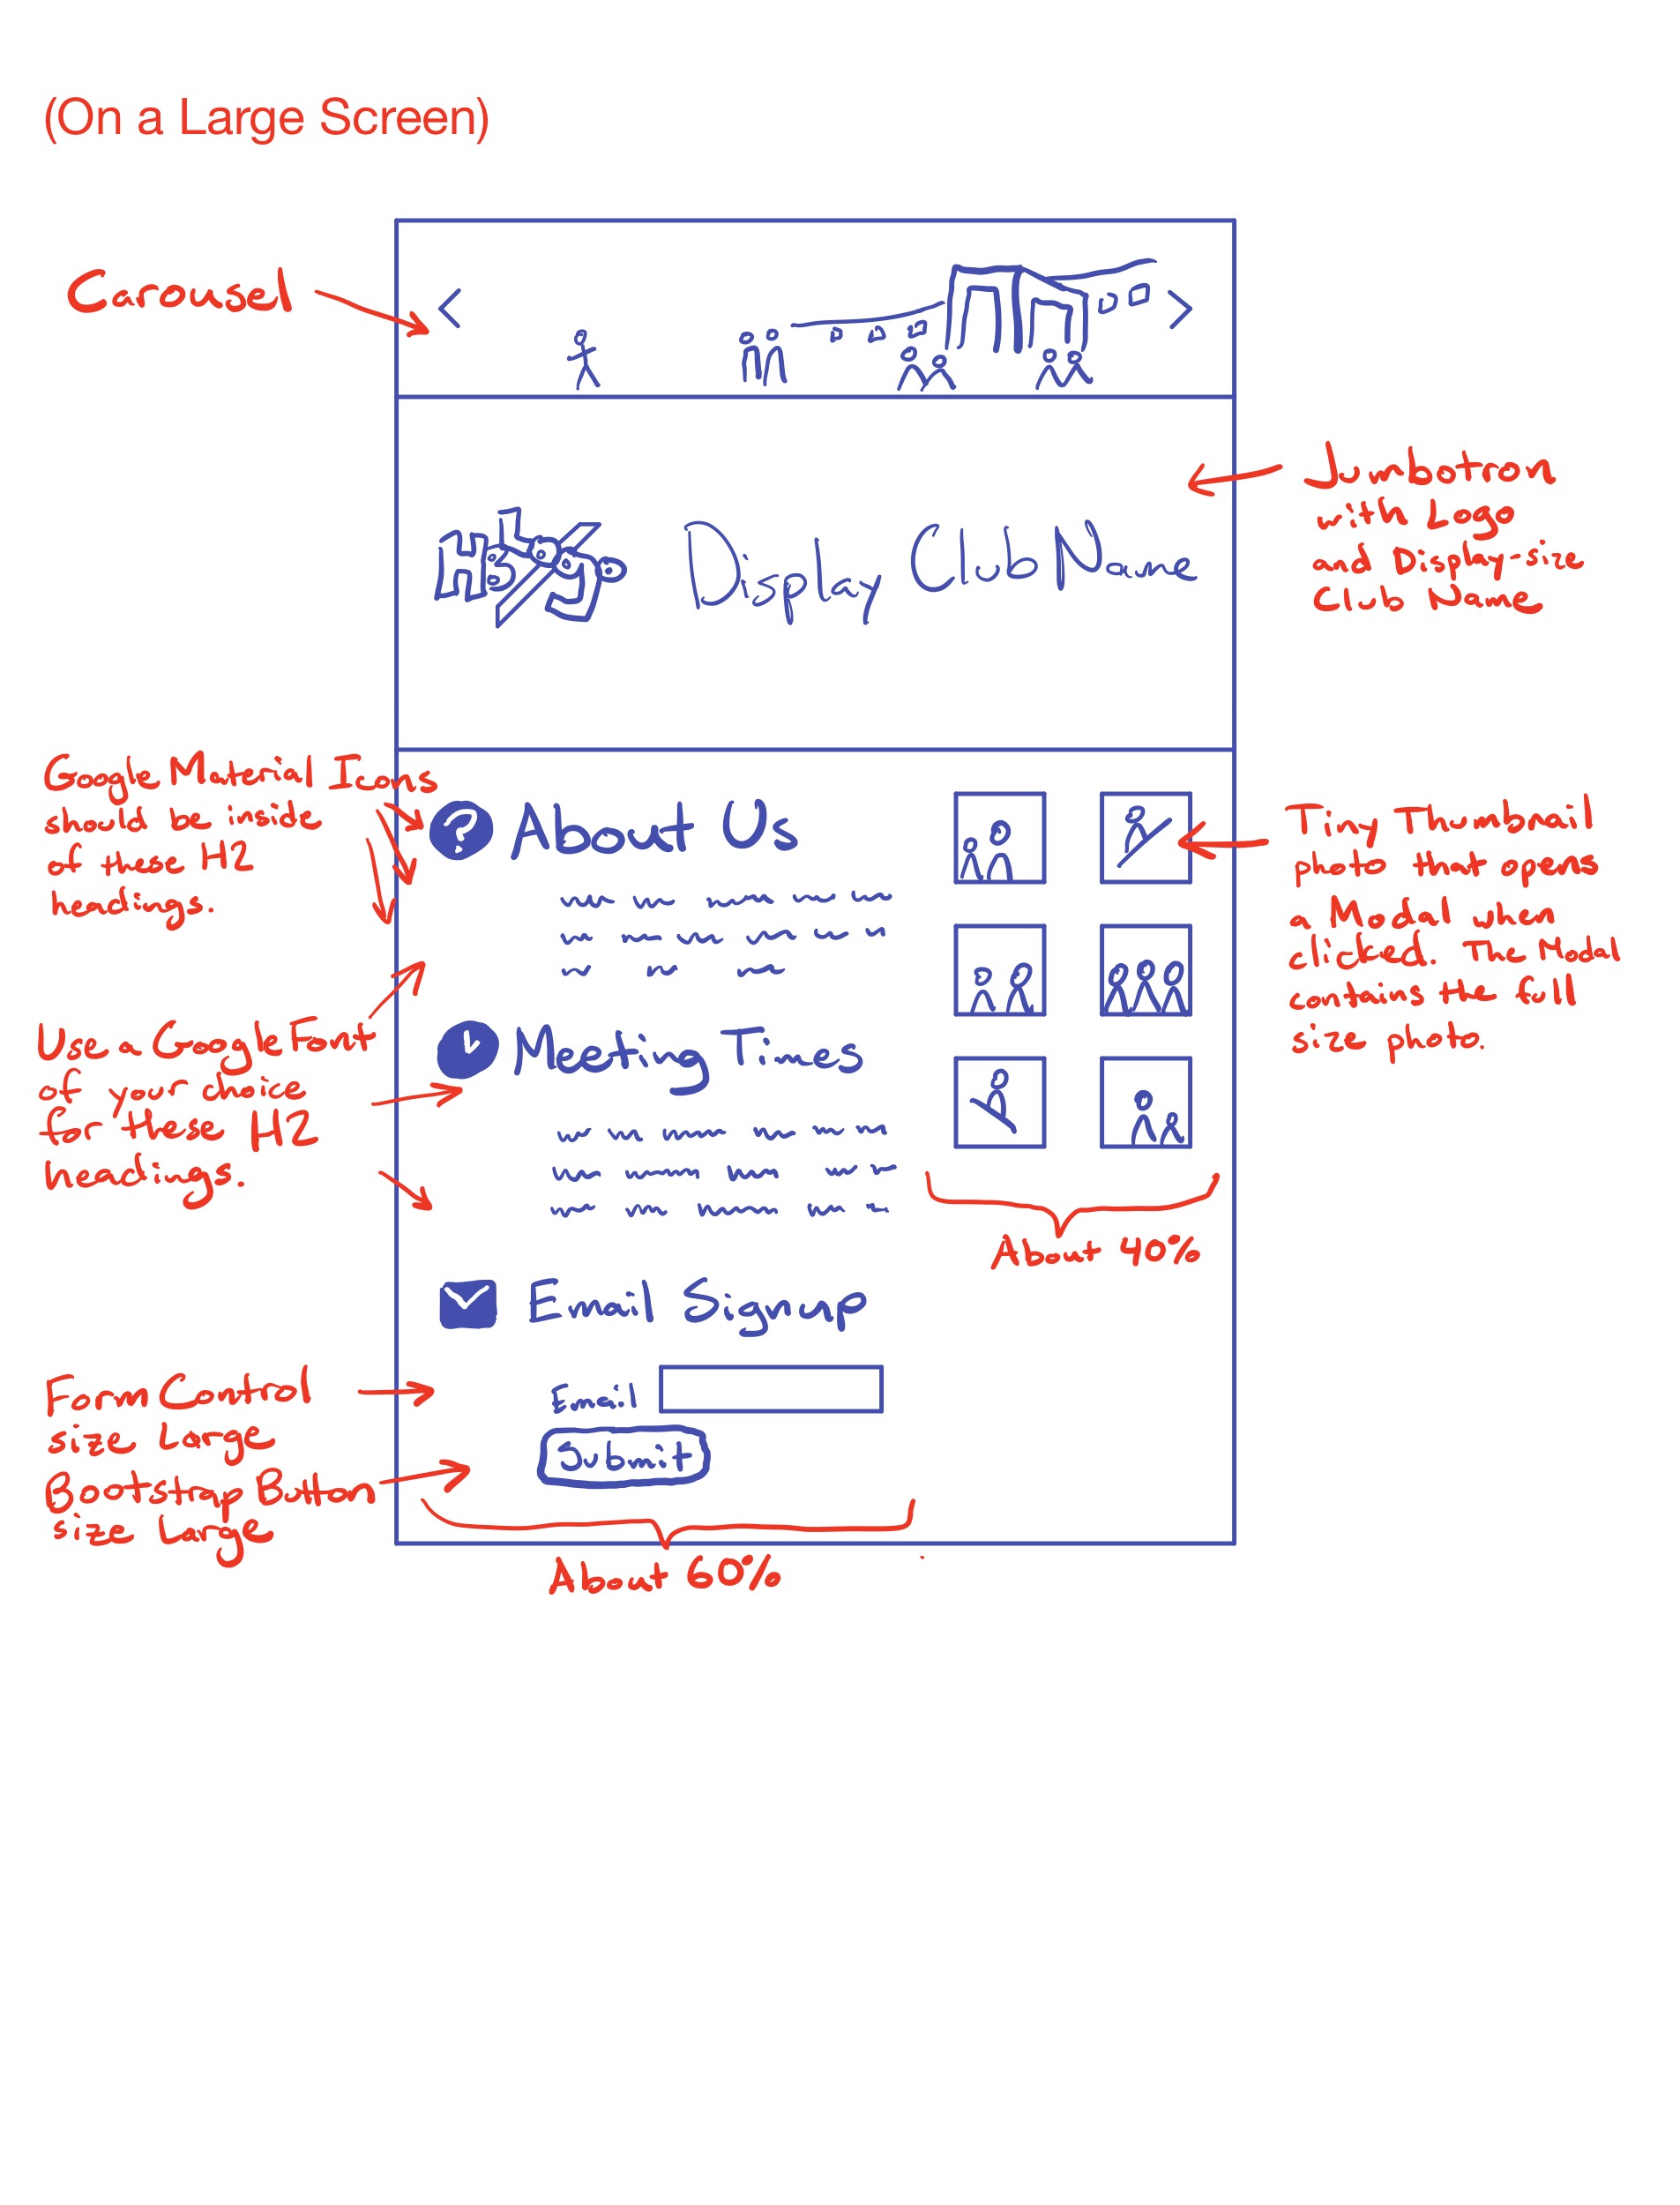 (On a Large Screen)
Carousel
<
>
Display Club Name
Jumbotron
with Logo
and Display-size
Club Name
Google Material Icons
should be inside
of these H2
headings.
? About Us
Tiny Thumbnail
photo that opens
a Modal when
clicked. The Modal
contains the full
size photo.
Use a Google Font
of your choice
for these H2
headings.
Meeting Times
About 40%
Email Signup
Form Control
size Large
Email
Bootstrap Button
size Large
Submit
About 60%